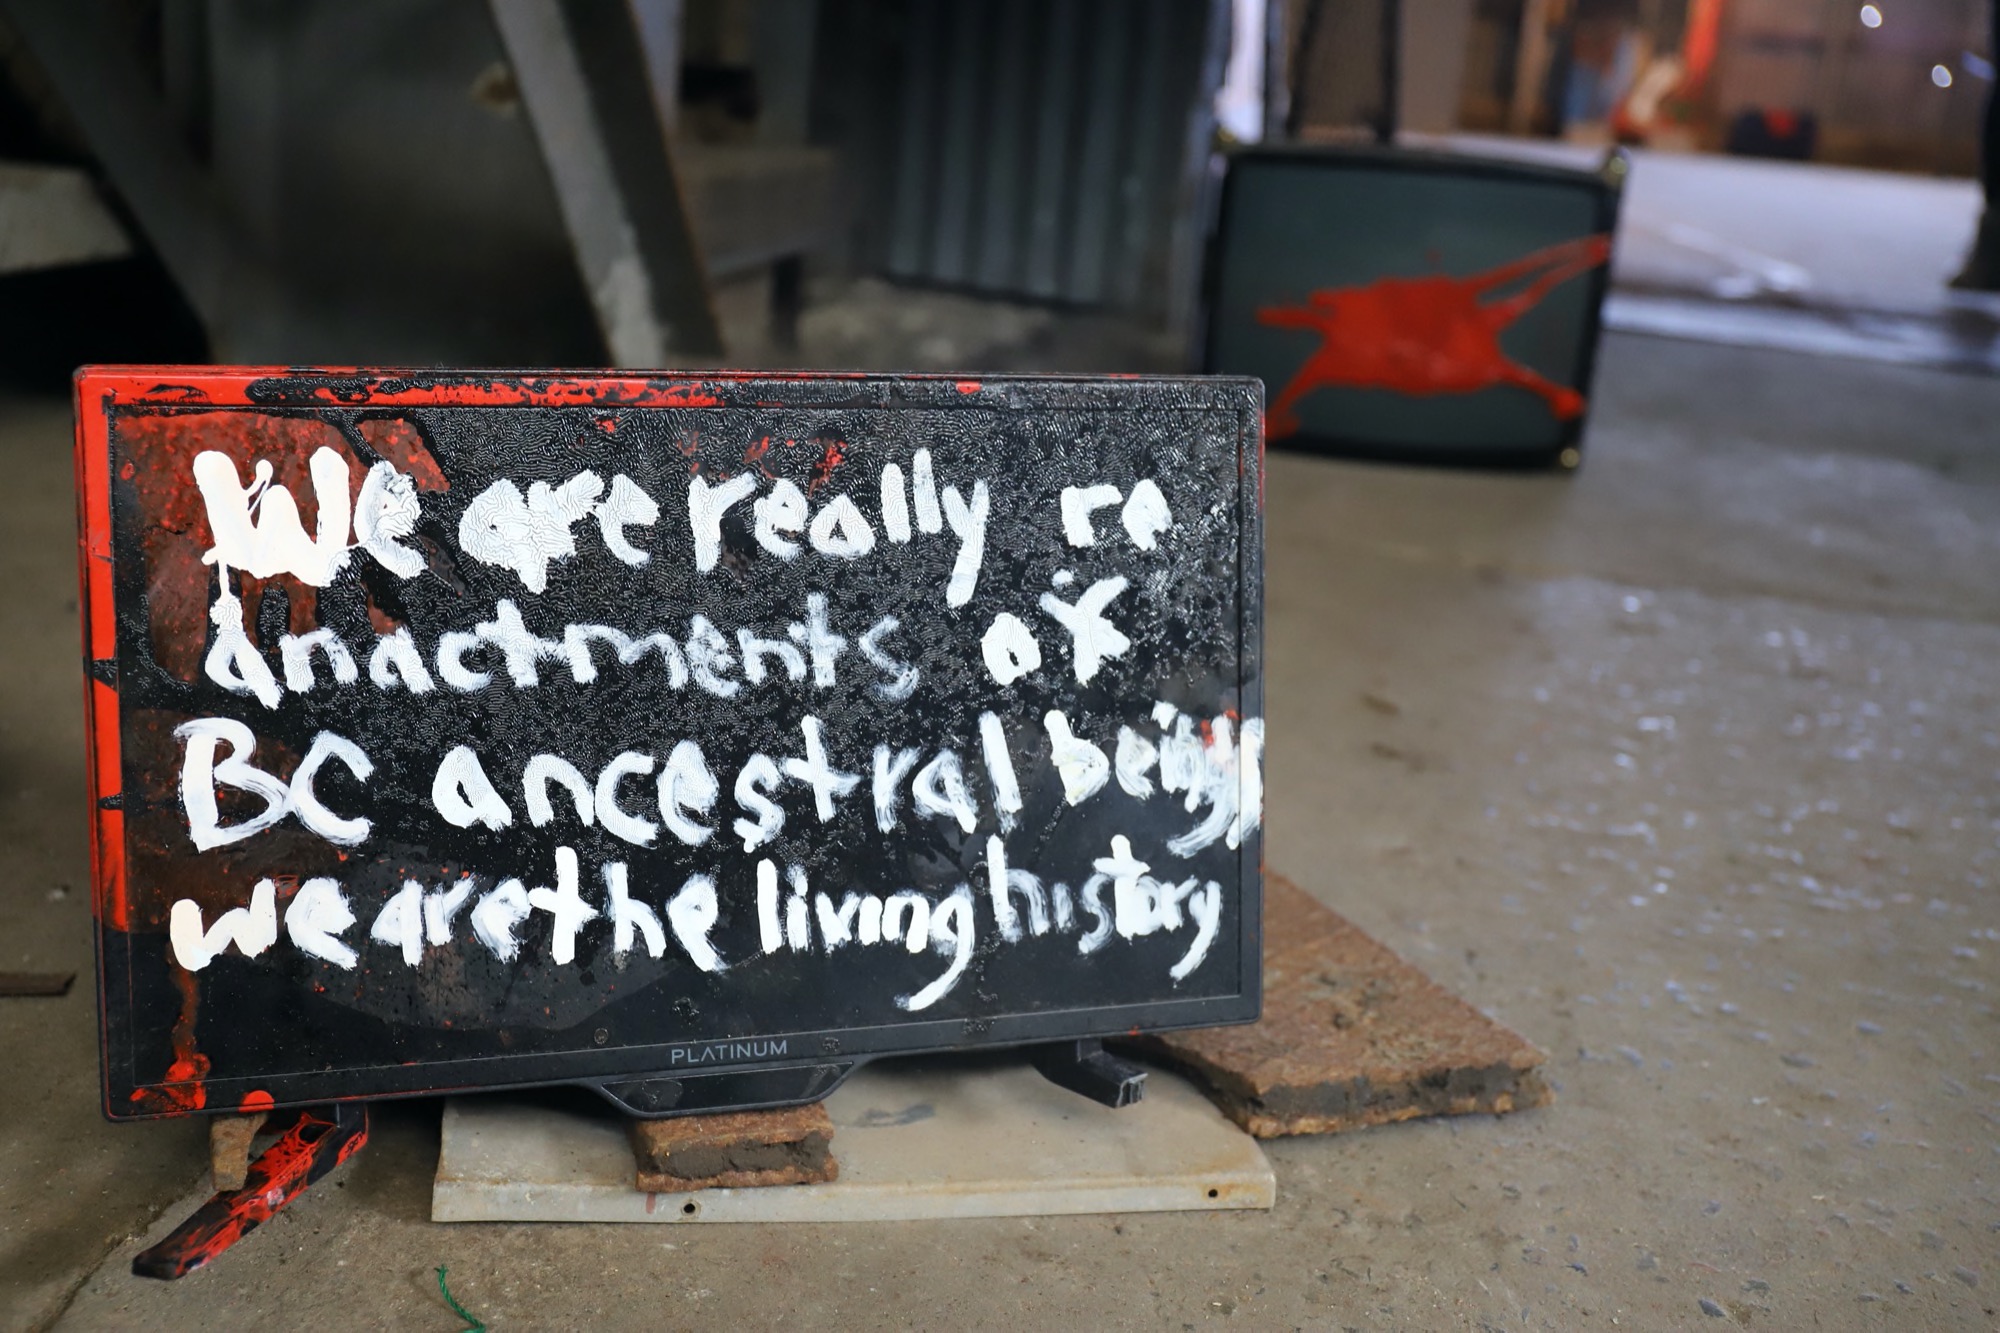 We are really re
anactments of
BC ancestral beings
we are the living history
PLATINUM